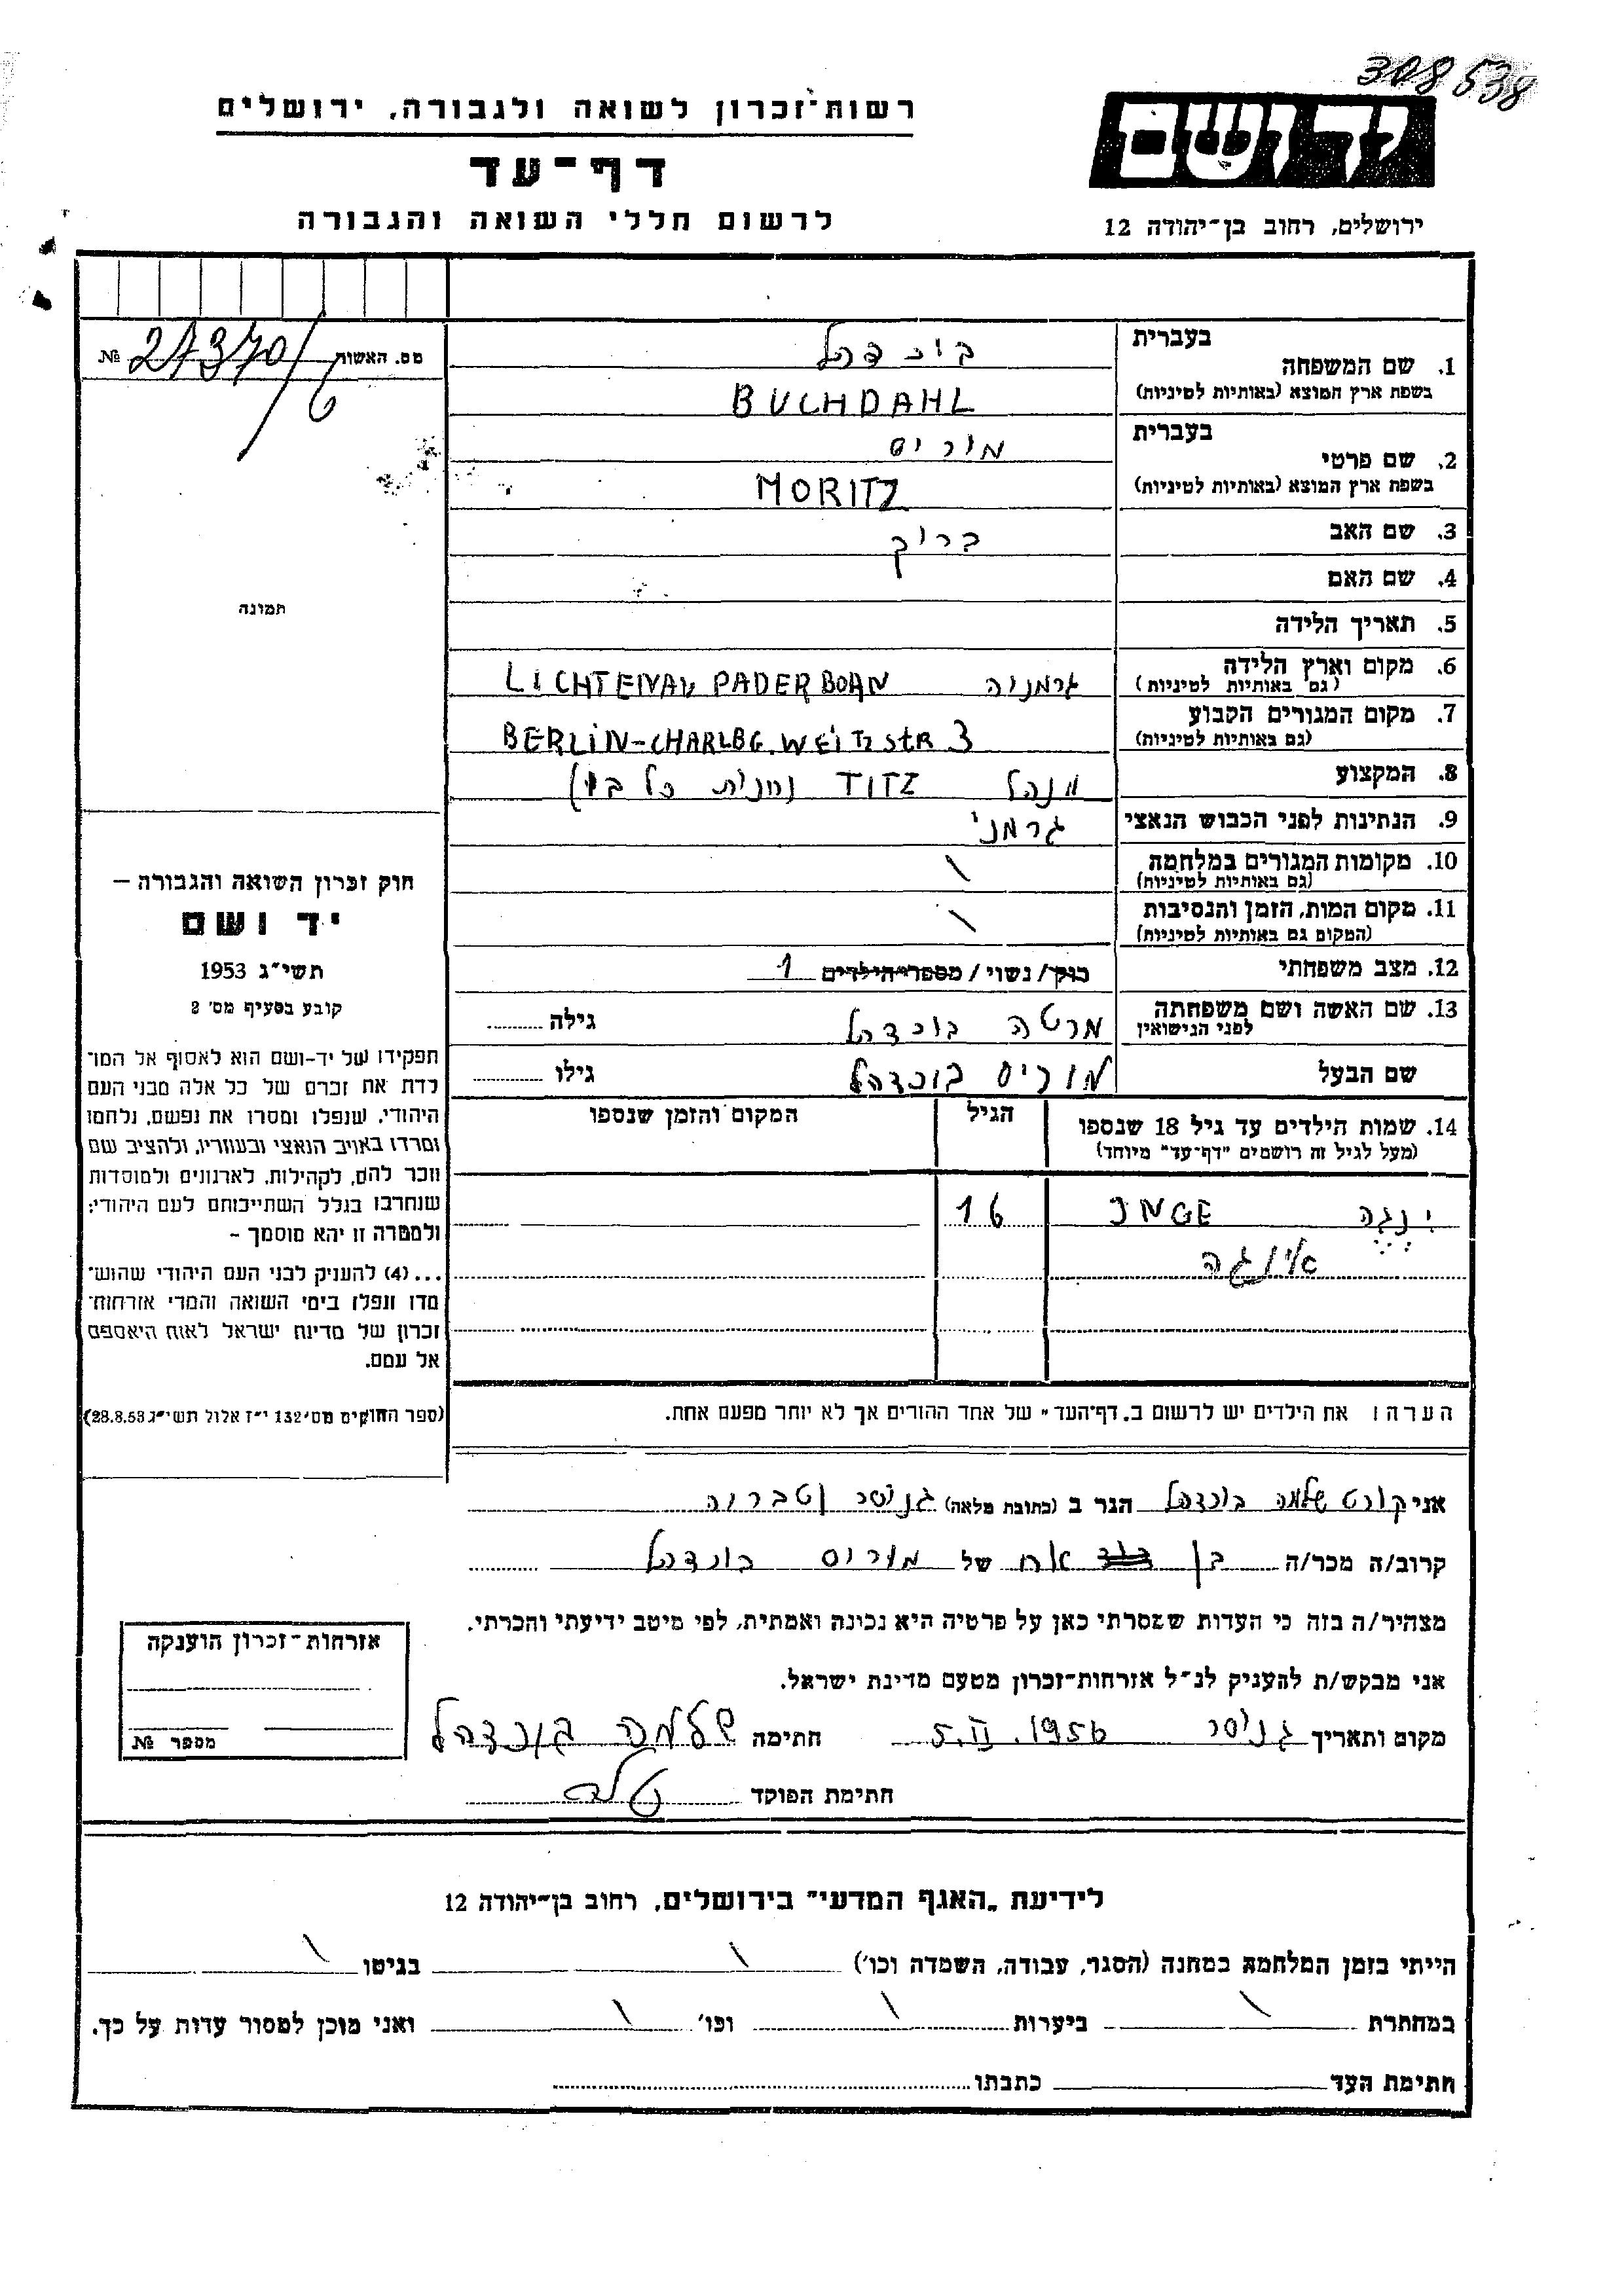 308538
ידושם
ירושלים, רחוב בן־יהודה 12
רשות־זכרון לשואה ולגבורה, ירושלים
דף־עד
לרשום חללי השואה והגבורה
מס. האשות № 27370/6
תמונה
1. שם המשפחה בעברית בוכדהל
בשפת ארץ המוצא (באותיות לטיניות) BUCHDAHL
2. שם פרטי בעברית מוריס
בשפת ארץ המוצא (באותיות לטיניות) MORITZ
3. שם האב ברוך
4. שם האם
5. תאריך הלידה
6. מקום וארץ הלידה גרמניה LICHTENAU PADERBORN
(גם באותיות לטיניות)
7. מקום המגורים הקבוע BERLIN-CHARLBG. WEITZSTR 3
(גם באותיות לטיניות)
8. המקצוע מנהל TITZ (חנית כל בו)
9. הנתינות לפני הכבוש הנאצי גרמני
10. מקומות המגורים במלחמה \
(גם באותיות לטיניות)
11. מקום המות, הזמן והנסיבות \
(המקום גם באותיות לטיניות)
12. מצב משפחתי רוק/ נשוי/ מספר הילדים 1
13. שם האשה ושם משפחתה מרטה בוכדהל גילה
לפני הנישואין
שם הבעל מוריס בוכדהל גילו
14. שמות הילדים עד גיל 18 שנספו הגיל המקום והזמן שנספו
(מעל לגיל זה רושמים "דף־עד" מיוחד)
ינגה INGE 16
אינגה
הערה: את הילדים יש לרשום ב„דף־העד" של אחד ההורים אך לא יותר מפעם אחת.
חוק זכרון השואה והגבורה —
יד ושם
תשי״ג 1953
קובע בסעיף מס׳ 2
תפקידו של יד-ושם הוא לאסוף אל המו־
לדת את זכרם של כל אלה מבני העם
היהודי, שנפלו ומסרו את נפשם, נלחמו
ומרדו באויב הנאצי ובעוזריו, ולהציב שם
וזכר להם, לקהילות, לארגונים ולמוסדות
שנחרבו בגלל השתייכותם לעם היהודי;
ולמטרה זו יהא מוסמך -
...(4) להעניק לבני העם היהודי שהוש־
מדו ונפלו בימי השואה והמרי אזרחות־
זכרון של מדינת ישראל לאות היאספם
אל עמם.
(ספר החוקים מס׳ 132 י״ז אלול תשי״ג 28.8.53)
אני קורט שלמה בוכדהל הגר ב (כתובת מלאה) גניסר טבריה
קרוב/ה מכר/ה בן אח של מוריס בוכדהל
מצהיר/ה בזה כי העדות שמסרתי כאן על פרטיה היא נכונה ואמתית, לפי מיטב ידיעתי והכרתי.
אני מבקש/ת להעניק לנ״ל אזרחות־זכרון מטעם מדינת ישראל.
מקום ותאריך גניסר 5.II.1956 חתימה שלמה בוכדהל
חתימת הפוקד
אזרחות־זכרון הוענקה
מספר №
לידיעת „האגף המדעי" בירושלים, רחוב בן־יהודה 12
הייתי בזמן המלחמה במחנה (הסגר, עבודה, השמדה וכו׳) \ בגיטו \
במחתרת \ ביערות \ וכו׳ \ ואני מוכן למסור עדות על כך.
חתימת העד כתבתו